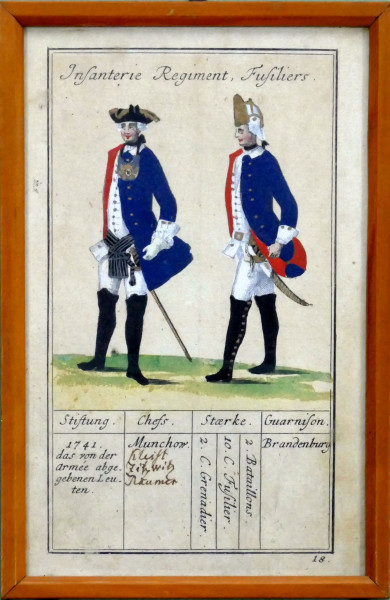 Infanterie Regiment, Fusiliers.
Stiftung. Chefs. Stærke. Guarnison.
1741.
das von der
Armée abge
gebenen Leu-
ten.
Munchow.
Kleist
Zitzwitz
Raumer
2. C. Grenadier.
10. C. Fusilier.
2. Bataillons.
Brandenburg
18.